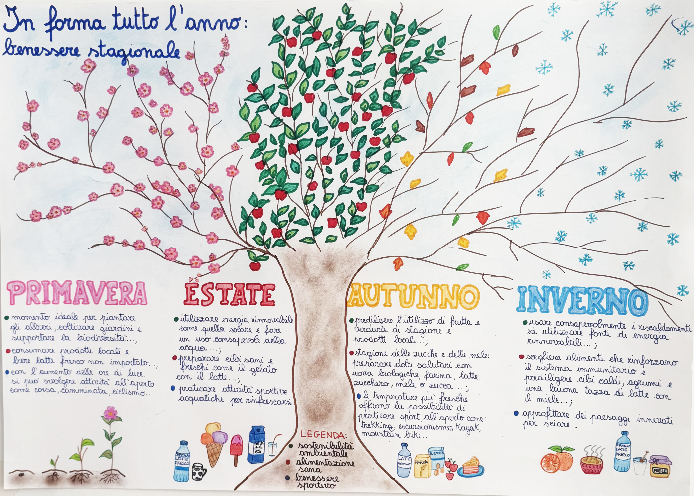 In forma tutto l'anno:
benessere stagionale
PRIMAVERA
momento ideale per piantare
gli alberi, coltivare giardini e
supportare la biodiversità...;
consumare prodotti locali e
bere latte fresco non importato;
con l'aumento delle ore di luce
si può svolgere attività all'aperto
come corsa, camminata, ciclismo...
ESTATE
utilizzare energia rinnovabile
come quella solare e fare
un uso consapevole della
acqua...;
preparare cibi sani e
freschi come il gelato
con il latte...;
praticare attività sportive
acquatiche per rinfrescarsi
AUTUNNO
prediligere l'utilizzo di frutta e
verdura di stagione e
prodotti locali...;
stagione delle zucche e delle mele:
preparare dolci salutari con
uova biologiche, farina, latte
zucchero, mele o zucca...;
le temperature più fresche
offrono la possibilità di
praticare sport all'aperto come
trekking, escursionismo, kayak,
mountain bike...
INVERNO
usare consapevolmente i riscaldamenti
ed utilizzare fonti di energia
rinnovabili...;
scegliere alimenti che rinforzano
il sistema immunitario e
prediligere cibi caldi, agrumi e
una buona tazza di latte con
il miele...;
approfittare dei paesaggi innevati
per sciare.
LEGENDA:
sostenibilità
ambientale
alimentazione
sana
benessere
sportivo